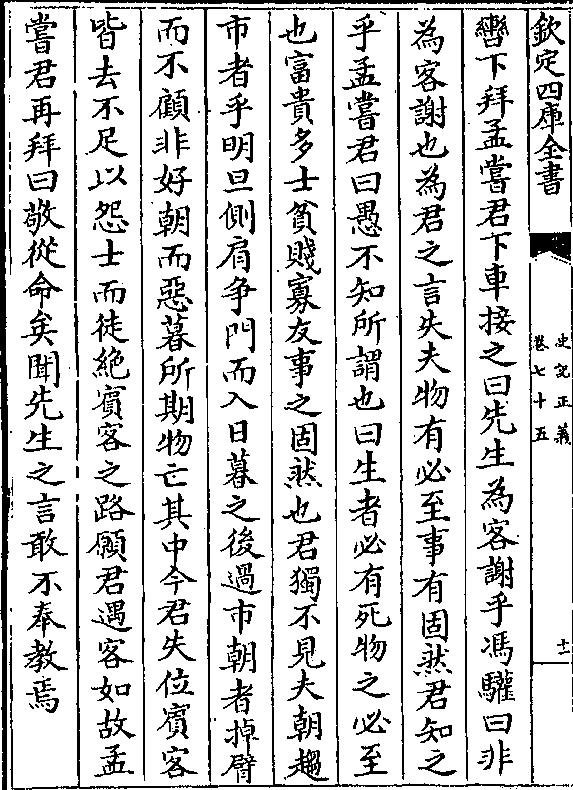 欽定四庫全書
史記正義
卷七十五
十一
轡下拜孟嘗君下車接之曰先生為客謝乎馮驩曰非
為客謝也為君之言失夫物有必至事有固然君知之
乎孟嘗君曰愚不知所謂也曰生者必有死物之必至
也富貴多士貧賤寡友事之固然也君獨不見夫朝趨
市者乎明旦側肩争門而入日暮之後過市朝者掉臂
而不顧非好朝而惡暮所期物亡其中今君失位賔客
皆去不足以怨士而徒絶賔客之路願君遇客如故孟
嘗君再拜曰敬從命矣聞先生之言敢不奉教焉